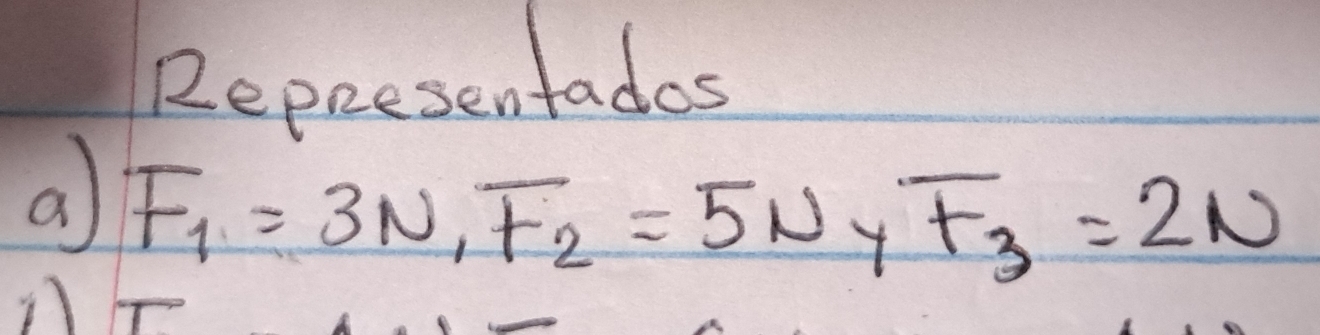 Representados
a) F₁ = 3N, F₂ = 5N y F₃ = 2N